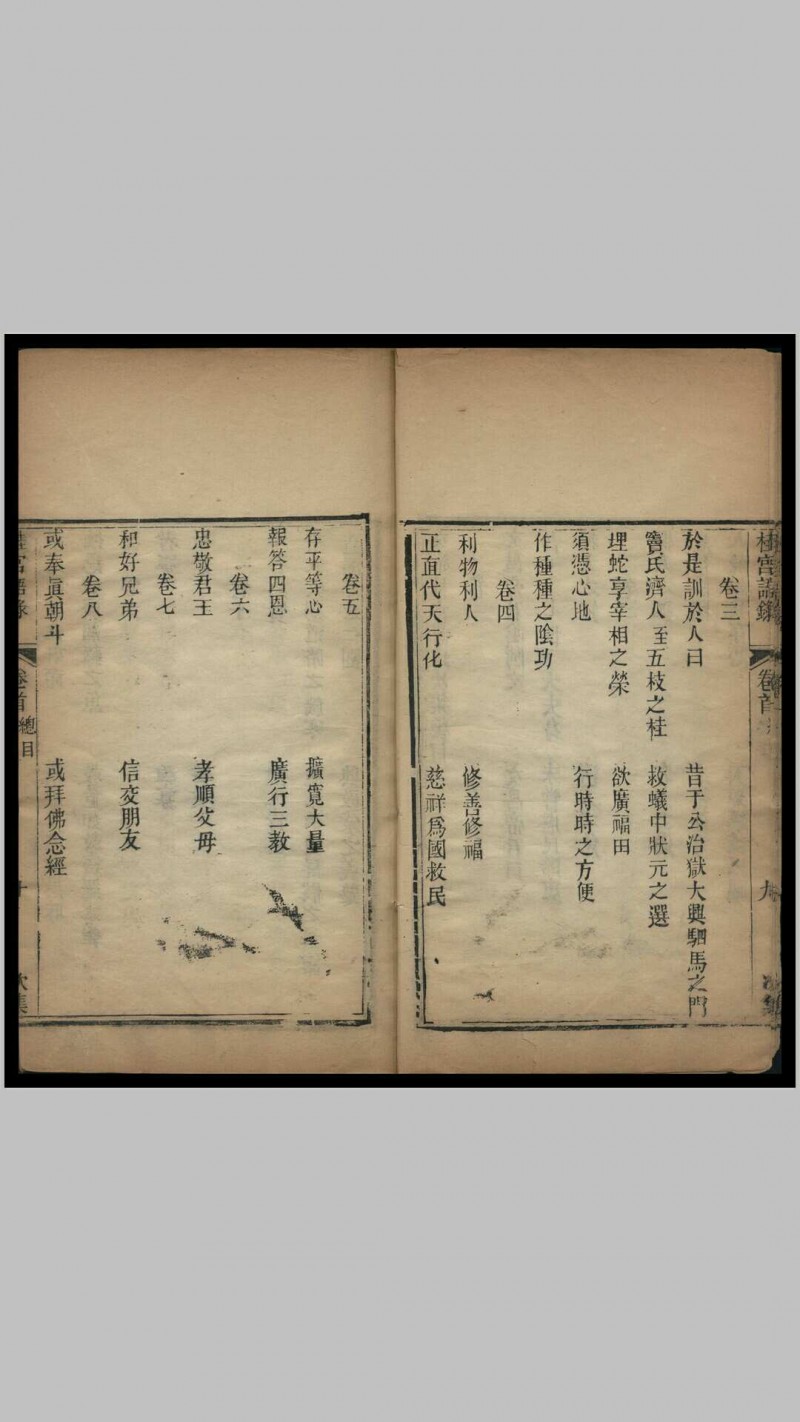 卷三
於是訓於人曰　昔于公治獄大興駟馬之門
竇氏濟人至五枝之桂　救蟻中狀元之選
埋蛇享宰相之榮　欲廣福田
須憑心地　行時時之方便
作種種之陰功
卷四
利物利人　修善修福
正直代天行化　慈祥爲國救民
卷五
存平等心　擴寬大量
報答四恩　廣行三教
卷六
忠敬君王　孝順父母
卷七
和好兄弟　信交朋友
卷八
或奉眞朝斗　或拜佛念經
卷首 總目